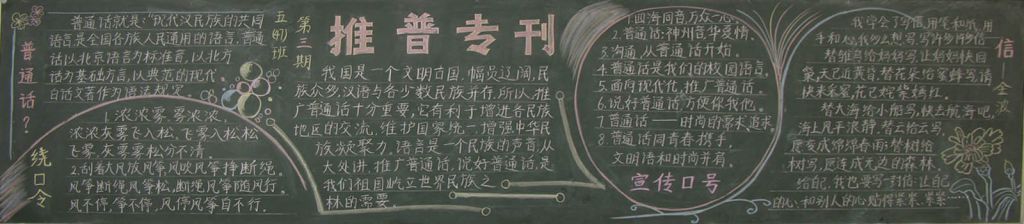 普通话？
普通话就是：“现代汉民族的共同
语言是全国各族人民通用的语言，普通
话以北京语音为标准音，以北方
话为基础方言，以典范的现代
白话文著作为语法规定
五(4)班
第三期
推普专刊
绕口令
1.浓浓雾，雾浓浓，
浓浓灰雾飞入松，飞雾入松松
飞雾，灰雾雾松分不清。
2.刮着大风放风筝，风吹风筝挣断绳，
风筝断绳风筝松，断绳风筝随风行，
风不停，筝不停，风停风筝自不行。
我国是一个文明古国，幅员辽阔，民
族众多，汉语与各少数民族并存，所以，推
广普通话十分重要，它有利于增进各民族
地区的交流，维护国家统一，增强中华民
族凝聚力，语言是一个民族的声音，从
大处讲，推广普通话，说好普通话，是
我们祖国屹立世界民族之
林的需要。
1.四海同音，万众一心。
2.普通话：神州音，华夏情。
3.沟通，从普通话开始。
4.普通话是我们的校园语言。
5.面向现代化，推广普通话。
6.说好普通话，方便你我他。
7.普通话——时尚的需求、追求
8.普通话同青春携手，
文明语和时尚并肩。
宣传口号
信—金波
我学会了写信，用笔和纸，用
手和心，我多么想写，写许多许多信
替雏鸟给妈妈写，让妈妈快回
窠，天已近黄昏，替花朵给蜜蜂写，请
快来采蜜，花已姹紫嫣红。
替大海给小船写，快去航海吧，
海上风平浪静，替云给云写，
愿变成绵绵春雨；替树给
树写，愿连成无边的森林。
给自己，我也要写一封信，让自己
的心，和别人的心贴得紧紧、紧紧…